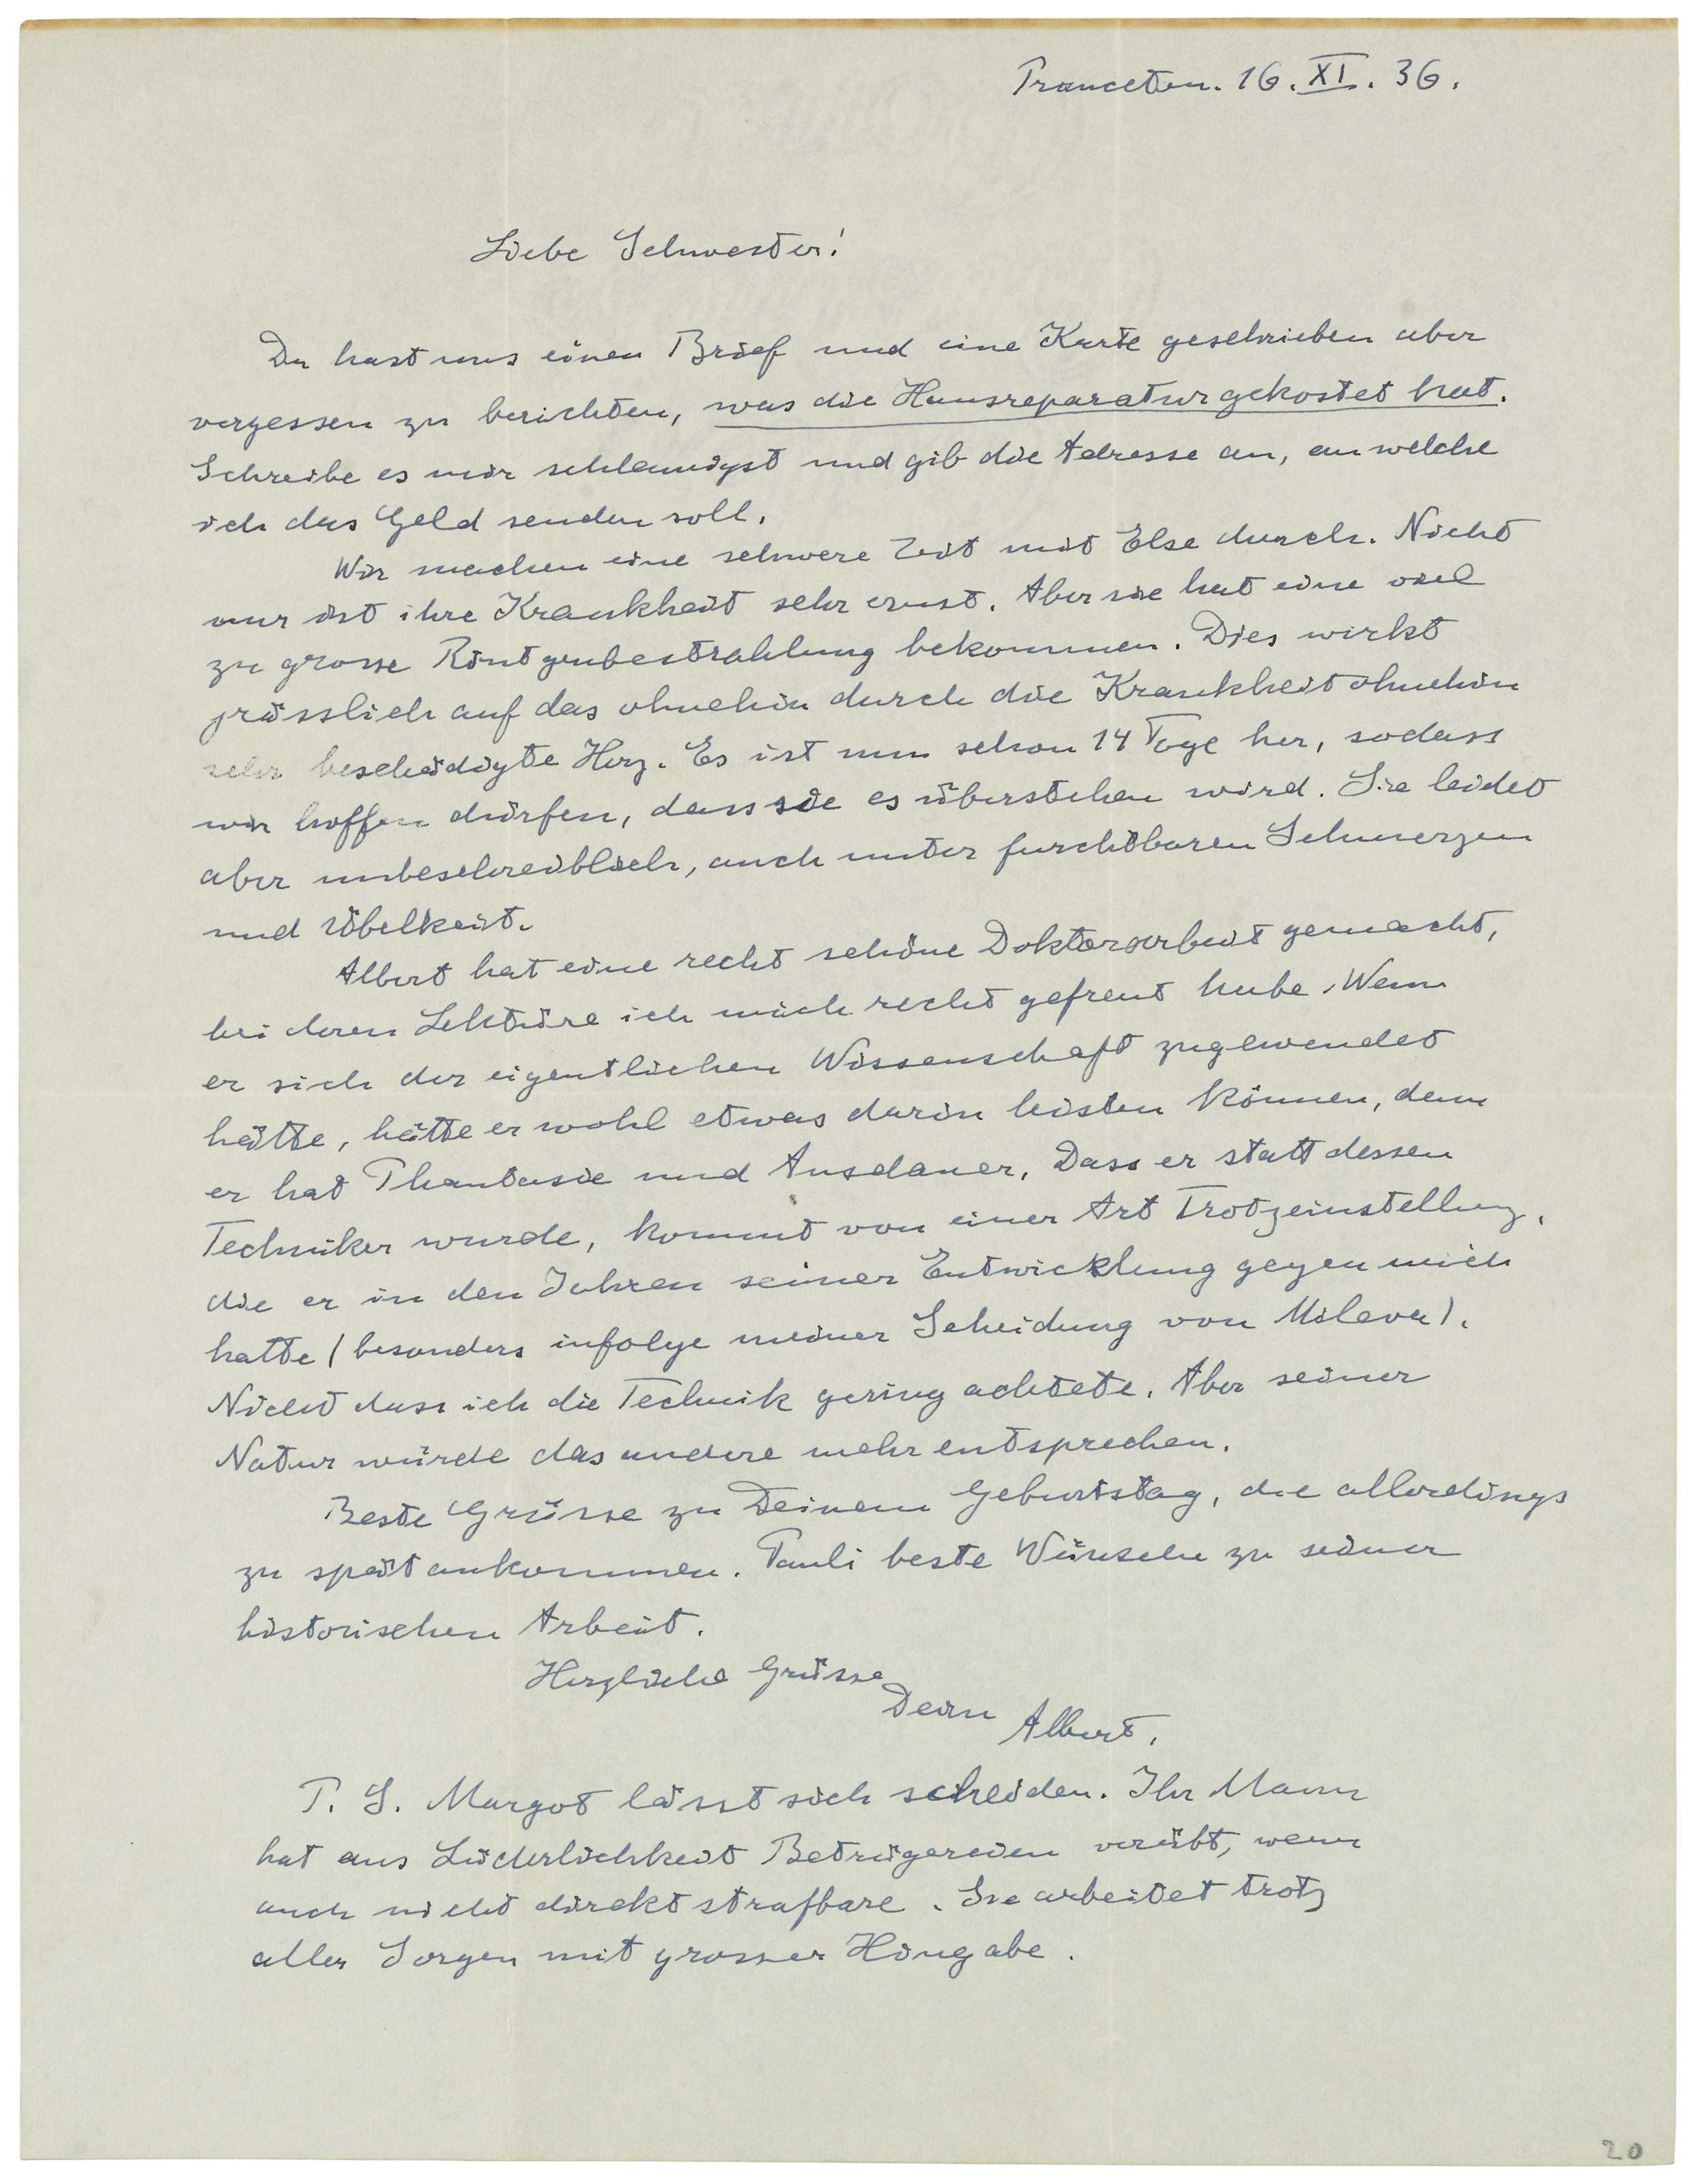 Princeton. 16. XI. 36.
Liebe Schwester!
Du hast uns einen Brief und eine Karte geschrieben aber
vergessen zu berichten, was die Hausreparatur gekostet hat.
Schreibe es mir schleunigst und gib die Adresse an, an welche
ich das Geld senden soll.
Wir machen eine schwere Zeit mit Else durch. Nicht
nur ist ihre Krankheit sehr ernst. Aber sie hat eine viel
zu grosse Röntgenbestrahlung bekommen. Dies wirkt
grässlich auf das ohnehin durch die Krankheit ohnehin
sehr beschädigte Herz. Es ist nun schon 14 Tage her, sodass
wir hoffen dürfen, dass sie es überstehen wird. Sie leidet
aber unbeschreiblich, auch unter furchtbaren Schmerzen
und Übelkeit.
Albert hat eine recht schöne Doktorarbeit gemacht,
bei deren Lektüre ich mich recht gefreut habe. Wenn
er sich der eigentlichen Wissenschaft zugewendet
hätte, hätte er wohl etwas darin leisten können, denn
er hat Phantasie und Ausdauer. Dass er statt dessen
Techniker wurde, kommt von einer Art Trotzeinstellung,
die er in den Jahren seiner Entwicklung gegen mich
hatte (besonders infolge meiner Scheidung von Mileva).
Nicht dass ich die Technik gering achtete. Aber seiner
Natur würde das andere mehr entsprechen.
Beste Grüsse zu Deinem Geburtstag, die allerdings
zu spät ankommen. Pauli beste Wünsche zu seiner
historischen Arbeit.
Herzliche Grüsse
Dein Albert.
P. S. Margot lässt sich scheiden. Ihr Mann
hat aus Liederlichkeit Betrügereien verübt, wenn
auch nicht direkt strafbare. Sie arbeitet trotz
aller Sorgen mit grosser Hingabe.
20